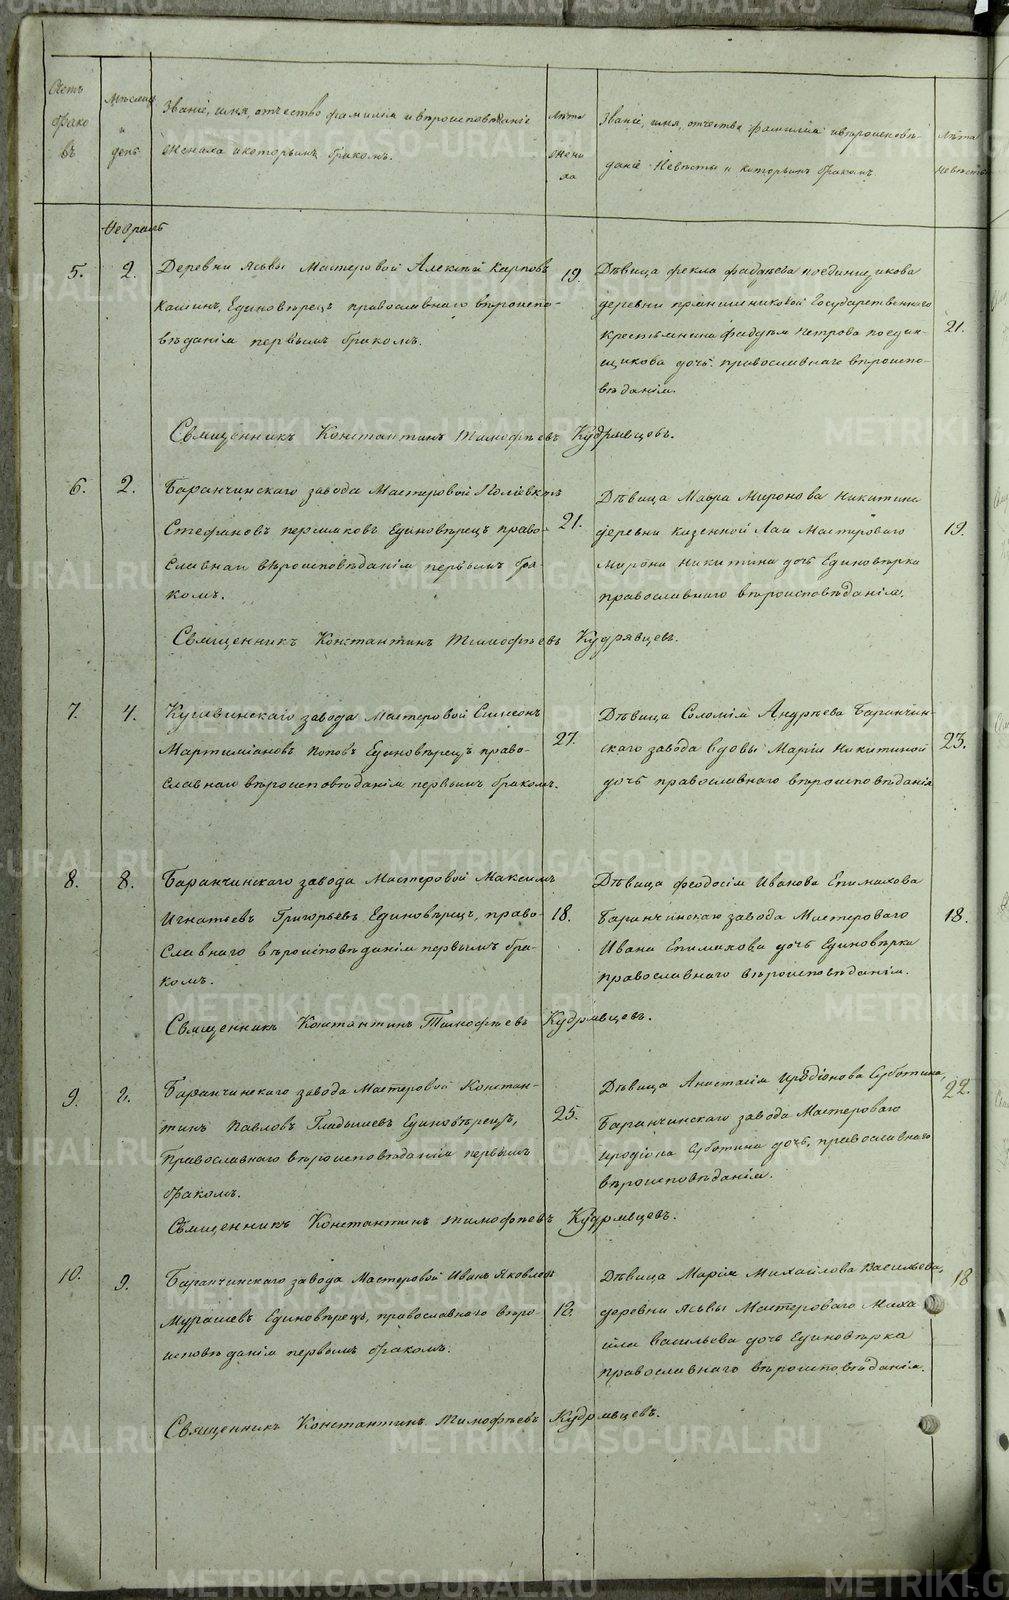 Счетъ
брако
въ
Мѣсяцъ
и
день
Званіе, имя, отчество фамилія и вѣроисповѣданіе
жениха и которымъ бракомъ.
Лѣта
жени
ха
Званіе, имя, отчество фамилія и вѣроисповѣ-
даніе Невѣсты и которымъ бракомъ
Лѣта
невѣсты
Февраль
5.
2.
Деревни Ясьвы Мастеровой Алексѣй Карповъ
Калинъ, Единовѣрецъ православнаго вѣроиспо-
вѣданія первымъ бракомъ.
19.
Дѣвица Фекла Фадѣева поединщикова
деревни прянишниковой Государственнаго
крестьянина Фадѣя Петрова поедин-
щикова дочь православнаго вѣроиспо-
вѣданія.
21.
Священникъ Константинъ Тимофѣевъ Кудрявцевъ.
6.
2.
Баранчинскаго завода Мастеровой Поліевктъ
Стефановъ першаковъ Единовѣрецъ право-
славнаго вѣроисповѣданія первымъ бра-
комъ.
21.
Дѣвица Мавра Миронова Никитина
деревни Казенной Лаи Мастероваго
Мирона Никитина дочь Единовѣрка
православнаго вѣроисповѣданія.
19.
Священникъ Константинъ Тимофѣевъ Кудрявцевъ.
7.
4.
Кушвинскаго завода Мастеровой Симеонъ
Мартиміановъ Поповъ Единовѣрецъ право-
славнаго вѣроисповѣданія первымъ бракомъ.
27.
Дѣвица Соломія Андрѣева Баранчин-
скаго завода вдовы Маріи Никитиной
дочь православнаго вѣроисповѣданія
23.
8.
8.
Баранчинскаго завода Мастеровой Максимъ
Игнатьевъ Григорьевъ Единовѣрецъ, право-
славнаго вѣроисповѣданія первымъ бра-
комъ.
18.
Дѣвица Феодосія Иванова Епимахова
Баранчинскаго завода Мастероваго
Ивана Епимахова дочь Единовѣрка
православнаго вѣроисповѣданія.
18.
Священникъ Константинъ Тимофѣевъ Кудрявцевъ.
9.
Баранчинскаго завода Мастеровой Констан-
тинъ Павловъ Гладышевъ Единовѣрецъ,
Православнаго вѣроисповѣданія первымъ
бракомъ.
25.
Дѣвица Анастасія Иродіонова Суботина,
Баранчинскаго завода Мастероваго
Иродіона Суботина дочь, православнаго
вѣроисповѣданія.
22.
Священникъ Константинъ Тимофѣевъ Кудрявцевъ.
10.
9.
Баранчинскаго завода Мастеровой Иванъ Яковлевъ
Мурашевъ Единовѣрецъ, православнаго вѣро-
исповѣданія первымъ бракомъ.
Дѣвица Марія Михайлова Васильева,
деревни Ясьвы Мастероваго Миха
ила Васильева дочь Единовѣрка
православнаго вѣроисповѣданія.
18
Священникъ Константинъ Тимофѣевъ Кудрявцевъ.
METRIKI.GASO-URAL.RU